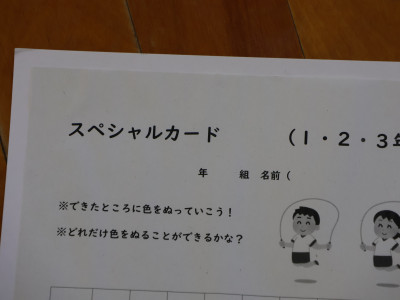 スペシャルカード　（１・２・３年
年　組　名前（
※できたところに色をぬっていこう！
※どれだけ色をぬることができるかな？